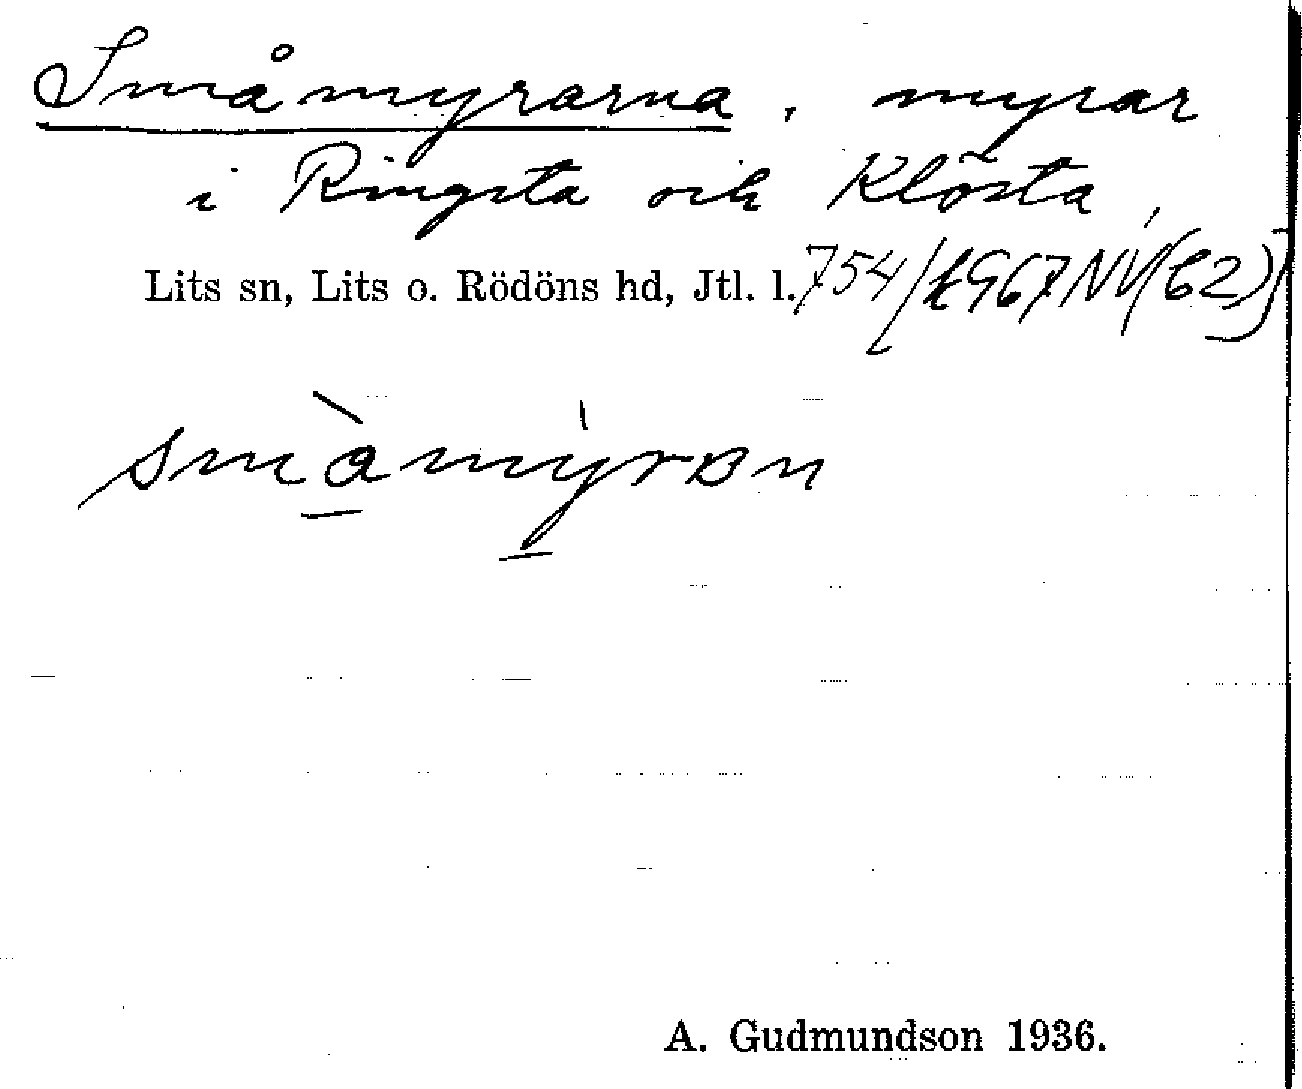 Småmyrarna, myrar
i Ringsta och Klösta,
Lits sn, Lits o. Rödöns hd, Jtl. l.
småmyran
A. Gudmundson 1936.